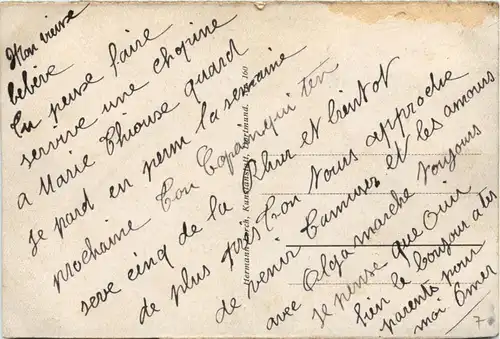 Mon vieux
bébère
Tu peuse faire
servire une chopine
a Marie Thiouse quard
je pard en perm la semaine
prochaine Ton Copain qui ten
sere cinq de la Rhur et bientot
de plus près Lon Vous approche
de venir Camuser et les amours
avec Olga marche toujours
je pense que Oui
bien le bonjour a tes
parents pour
moi Omer
Hermann Lorch, Kunstanstalt, Dortmund. 160
7